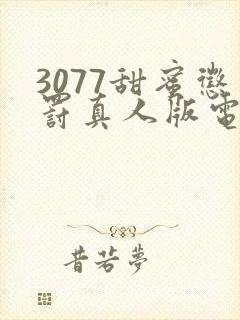 3077甜蜜懲
罸真人版電
昔若夢